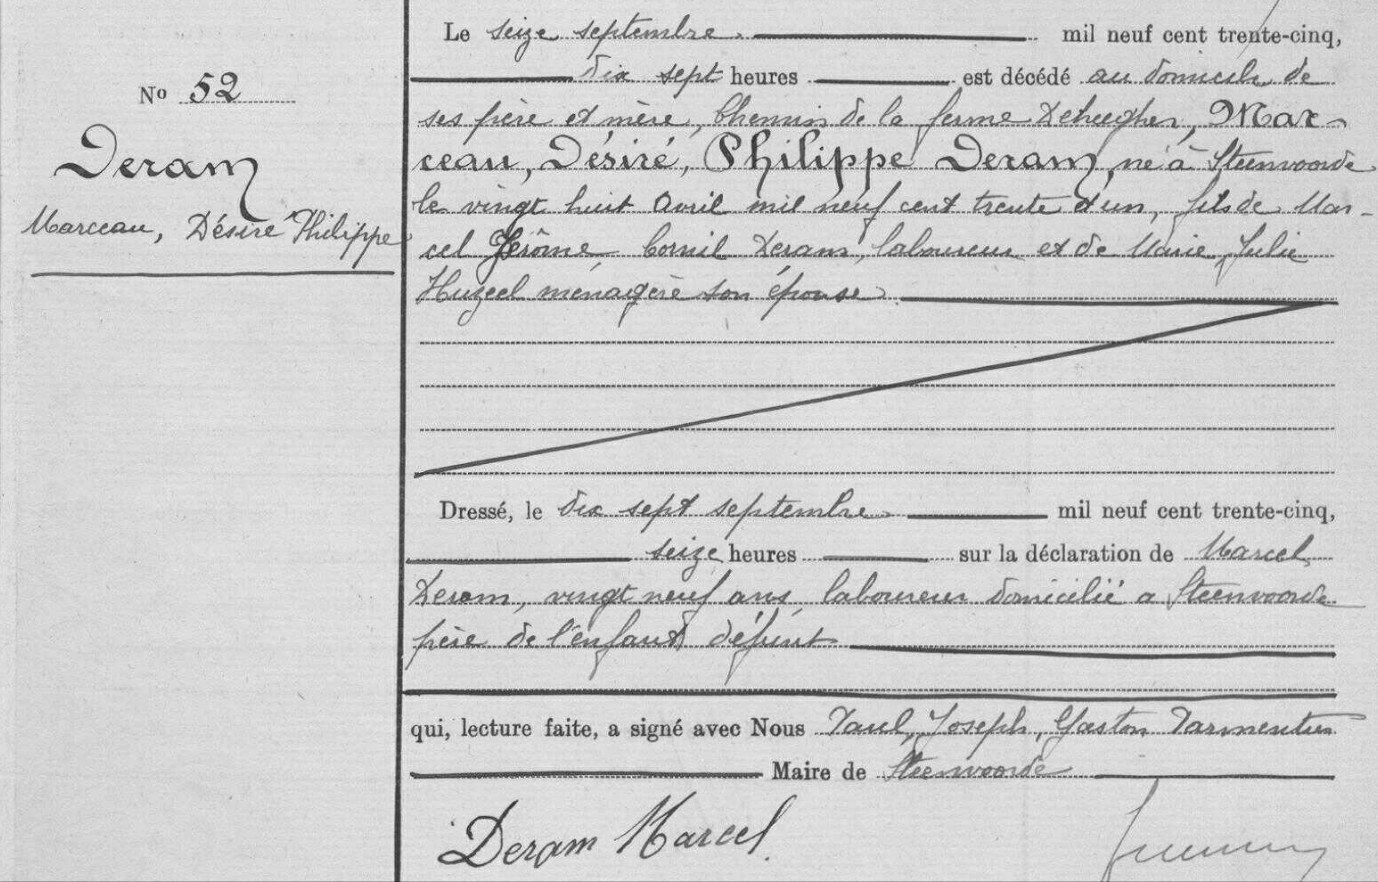 No 52
Deram
Marceau, Désiré Philippe
Le seize septembre. mil neuf cent trente-cinq,
dix sept heures est décédé au domicile de
ses père et mère, Chemin de la ferme Mar-
ceau, Désiré, Philippe Deram, né à Steenvoorde
le vingt huit Avril mil neuf cent trente et un, fils de Mar-
cel Jérôme Cornil Deram, laboureur et de Marie Julie
ménagère son épouse
Dressé, le dix sept septembre. mil neuf cent trente-cinq,
seize heures sur la déclaration de Marcel
Deram, vingt neuf ans, laboureur domicilié a Steenvoorde
père de l'enfant défunt
qui, lecture faite, a signé avec Nous Paul, Joseph, Gaston
Maire de Steenvoorde
Deram Marcel.